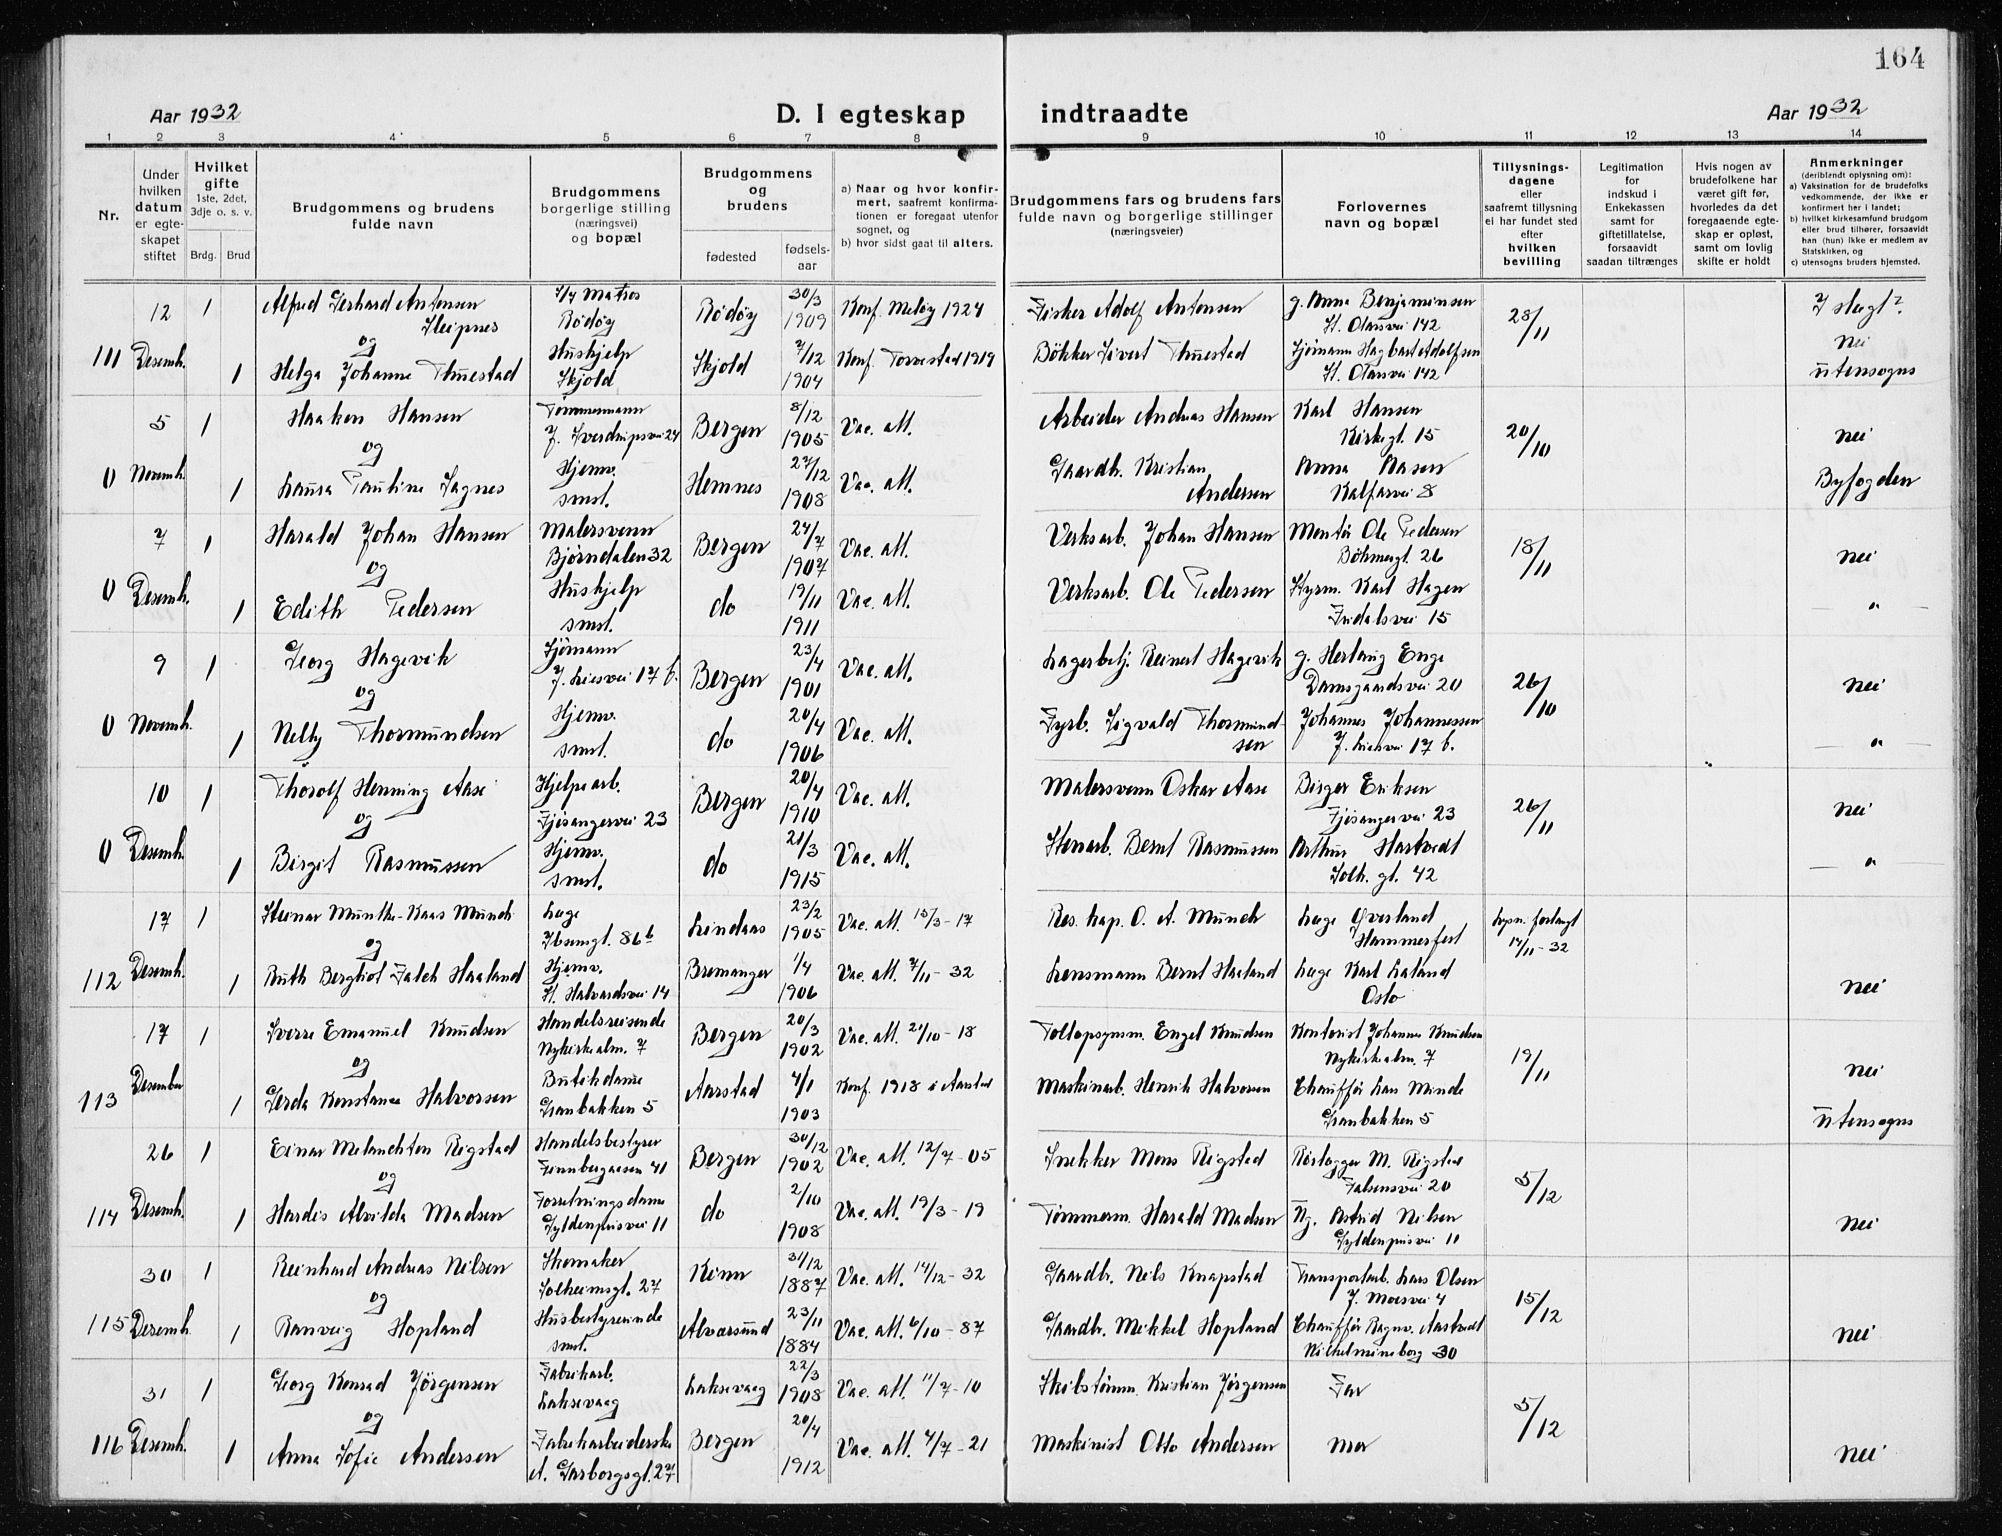 164
Aar 1932
D. I egteskap
indtraadte
Aar 1932
1 2 3 4 5 6 7 8 9 10 11 12 13 14
Nr.
Under hvilken datum er egteskapet stiftet
Hvilket gifte 1ste, 2det, 3dje o. s. v.
Brdg. Brud
Brudgommens og brudens fulde navn
Brudgommens borgerlige stilling (næringsvei) og bopæl
Brudgommens og brudens
fødested
fødsels-aar
a) Naar og hvor konfirmert, saafremt konfirmationen er foregaat utenfor sognet, og
b) hvor sidst gaat til alters.
Brudgommens fars og brudens fars fulde navn og borgerlige stillinger (næringsveier)
Forlovernes navn og bopæl
Tillysningsdagene eller saafremt tillysning ei har fundet sted efter hvilken bevilling
Legitimation for indskud i Enkekassen samt for giftetillatelse, forsaavidt saadan tiltrænges
Hvis nogen av brudefolkene har været gift før, hvorledes da det foregaaende egteskap er opløst, samt om lovlig skifte er holdt
Anmerkninger (deriblandt oplysning om):
a) Vaksination for de brudefolks vedkommende, der ikke er konfirmert her i landet;
b) hvilket kirkesamfund brudgom eller brud tilhører, forsaavidt han (hun) ikke er medlem av Statskirken, og
c) utensogns bruders hjemsted.
12 1 Alfred Gerhard Antonsen Sleipnes Matros Rödöy Rödöy 30/3 1909 Konf. Melöy 1924 Fisker Adolf Antonsen g. Anna Benjaminsen St. Olavsvei 142 28/11
og
111 Desemb. 1 Helga Johanne Thuestad Hushjelp Skjold Skjold 7/12 1904 Konf. Torvestad 1919 Bökker Sivert Thuestad Sjömann Hagbart Adolfsen St. Olavsvei 142 nei utensogns
5 1 Haakon Hansen Tömmermann J. Sverdrupsvei 24 Bergen 8/12 1905 Vac. att. Arbeider Andreas Hansen Karl Hansen Kirkegt. 15 20/10 nei
og
0 Novemb. 1 Laura Pauline Sagnes Hjemv. smst. Hemnes 27/12 1908 Vac. att. Gaardbr. Kristian Andersen Anna Aasen Kalfarvei 8 Byfogden
7 1 Harald Johan Hansen Malersvenn Björndalen 32 Bergen 24/7 1907 Vac. att. Verksarb. Johan Hansen Montör Ole Pedersen Böhmergt. 26 18/11 nei
og
0 Desemb. 1 Edith Pedersen Hushjelp smst. do 19/11 1911 Vac. att. Verksarb. Ole Pedersen Styrm. Karl Hagen Fridalsvei 15 — " —
9 1 Georg Hagevik Sjömann J. Liesvei 17 b. Bergen 23/4 1901 Vac. att. Lagerbetj. Reinert Hagevik g. Herlaug Enge Damsgaardsvei 20 26/10 nei
og
0 Novemb. 1 Nelly Thormundsen Hjemv. smst. do 20/4 1906 Vac. att. Fyrb. Sigvald Thormundsen Johannes Johannessen J. Liesvei 17 b. — " —
10 1 Thorolf Henning Aase Hjelpearb. Fjösangervei 23 Bergen 20/4 1910 Vac. att. Malersvenn Oskar Aase Birger Eriksen Fjösangervei 23 26/11 nei
og
0 Desemb. 1 Birgit Rasmussen Hjemv. smst. do 21/3 1915 Vac. att. Stenarb. Bernt Rasmussen Arthur Hartvedt Solh. gt. 42 — " —
17 1 Steinar Munthe-Kaas Munch Læge Ibsensgt. 86 b Lindaas 23/2 1905 Vac. att. 15/3-17 Res. kap. O. A. Munch Læge Överland Hammerfest Lysn. forlangt 17/11-32
og
112 Desemb. 1 Ruth Bergliot Falch Haaland Hjemv. St. Halvardsvei 14 Bremanger 1/4 1906 Vac. att. 7/11-32 Lensmann Bernt Haaland Læge Karl Laland Oslo nei
17 1 Sverre Emanuel Knudsen Handelsreisende Nykirkealm. 7 Bergen 20/3 1902 Vac. att. 21/10-18 Toltopsynsm. Engel Knudsen Kontorist Johannes Knudsen Nykirkealm. 7 19/11 nei
og
113 Desember 1 Gerda Konstance Halvorsen Butikdame Granbakken 5 Aarstad 4/1 1903 Konf. 1918 i Aarstad Maskinarb. Henrik Halvorsen Chaufför Lars Minde Granbakken 5 utensogns
26 1 Einar Melanchton Rigstad Handelsbestyrer Finnbergaasen 41 Bergen 30/12 1902 Vac. att. 12/7-05 Snekker Mons Rigstad Rörlegger M. Rigstad Falsensvei 20 5/12
og
114 Desemb. 1 Hardis Alvilda Madsen Forretningsdame Gyldenprisvei 11 do 2/10 1908 Vac. att. 19/3-19 Tömmerm. Harald Madsen Ng. Astrid Nilsen Gyldenprisvei 11 nei
30 1 Reinhard Andreas Nilsen Skomaker Solheimsgt. 27 Kinn 31/12 1887 Vac. att. 14/12-32 Gaardbr. Nils Knapstad Transportarb. Lars Olsen J. Moesvei 4 15/12
og
115 Desemb. 1 Ranveig Hopland Husbestyrerinde smst. Alversund 23/11 1884 Vac. att. 6/10-87 Gaardbr. Mikkel Hopland Chaufför Ragnv. Aastvedt Wilhelmineborg 30 nei
31 1 Georg Konrad Jörgensen Fabrikarb. Laksevaag Laksevaag 22/3 1908 Vac. att. 11/7-10 Skibstömm. Kristian Jörgensen Far 5/12
og
116 Desemb. 1 Anna Sofie Andersen Fabrikarbeiderske A. Garborgsgt. 27 Bergen 20/4 1912 Vac. att. 4/7-21 Maskinist Otto Andersen Mor nei